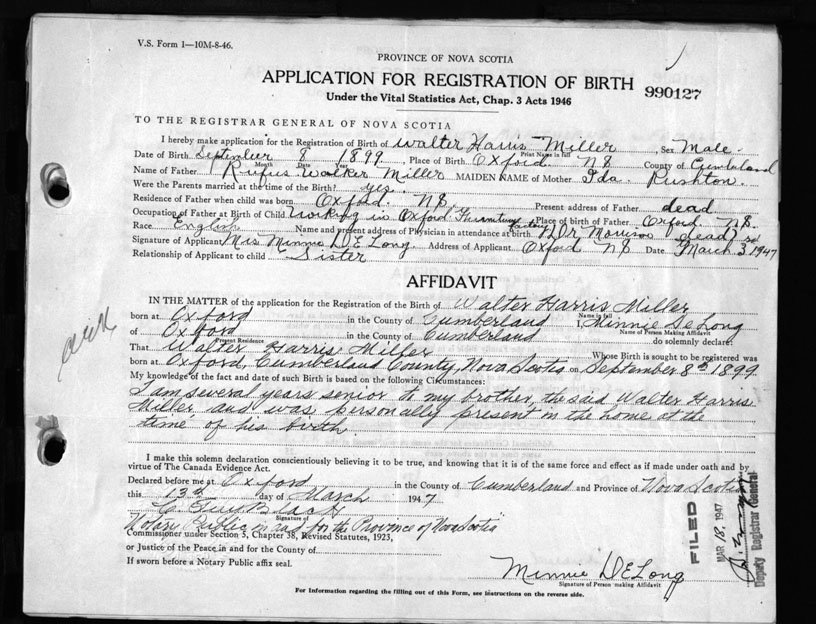 V.S. Form 1—10M-8-46.
PROVINCE OF NOVA SCOTIA
APPLICATION FOR REGISTRATION OF BIRTH
990127
Under the Vital Statistics Act, Chap. 3 Acts 1946
TO THE REGISTRAR GENERAL OF NOVA SCOTIA
I hereby make application for the Registration of Birth of Walter Harris Miller, Sex Male.
Print Name in full
Date of Birth September 8 1899, Place of Birth Oxford. NS County of Cumberland
Month Date Year
Name of Father Rufus Walker Miller MAIDEN NAME of Mother Ida Rushton.
Were the Parents married at the time of the Birth? yes.
Residence of Father when child was born Oxford. NS. Present address of Father dead
Occupation of Father at Birth of Child Working in Oxford Furniture factory Place of birth of Father Oxford. NS.
Race English Name and present address of Physician in attendance at birth Dr Morrison dead
Signature of Applicant Mrs Minnie DeLong. Address of Applicant Oxford NS Date March 3rd 1947
Relationship of Applicant to child Sister
AFFIDAVIT
IN THE MATTER of the application for the Registration of the Birth of Walter Harris Miller
Name in full
born at Oxford in the County of Cumberland I, Minnie DeLong
Name of Person Making Affidavit
of Oxford in the County of Cumberland do solemnly declare:
Present Residence
That Walter Harris Miller Whose Birth is sought to be registered was
born at Oxford, Cumberland County, Nova Scotia on September 8th 1899
My knowledge of the fact and date of such Birth is based on the following Circumstances:
I am several years senior to my brother, the said Walter Harris
Miller and was personally present in the home at the
time of his birth.
I make this solemn declaration conscientiously believing it to be true, and knowing that it is of the same force and effect as if made under oath and by
virtue of The Canada Evidence Act.
Declared before me at Oxford in the County of Cumberland and Province of Nova Scotia
this 13th day of March 1947
Signature of
Notary Public in and for the Province of Nova Scotia
Commissioner under Section 5, Chapter 38, Revised Statutes, 1923,
or Justice of the Peace in and for the County of
If sworn before a Notary Public affix seal.
Minnie DeLong
Signature of Person making Affidavit
For Information regarding the filling out of this Form, see instructions on the reverse side.
FILED
MAR 18. 1947
Deputy Registrar General